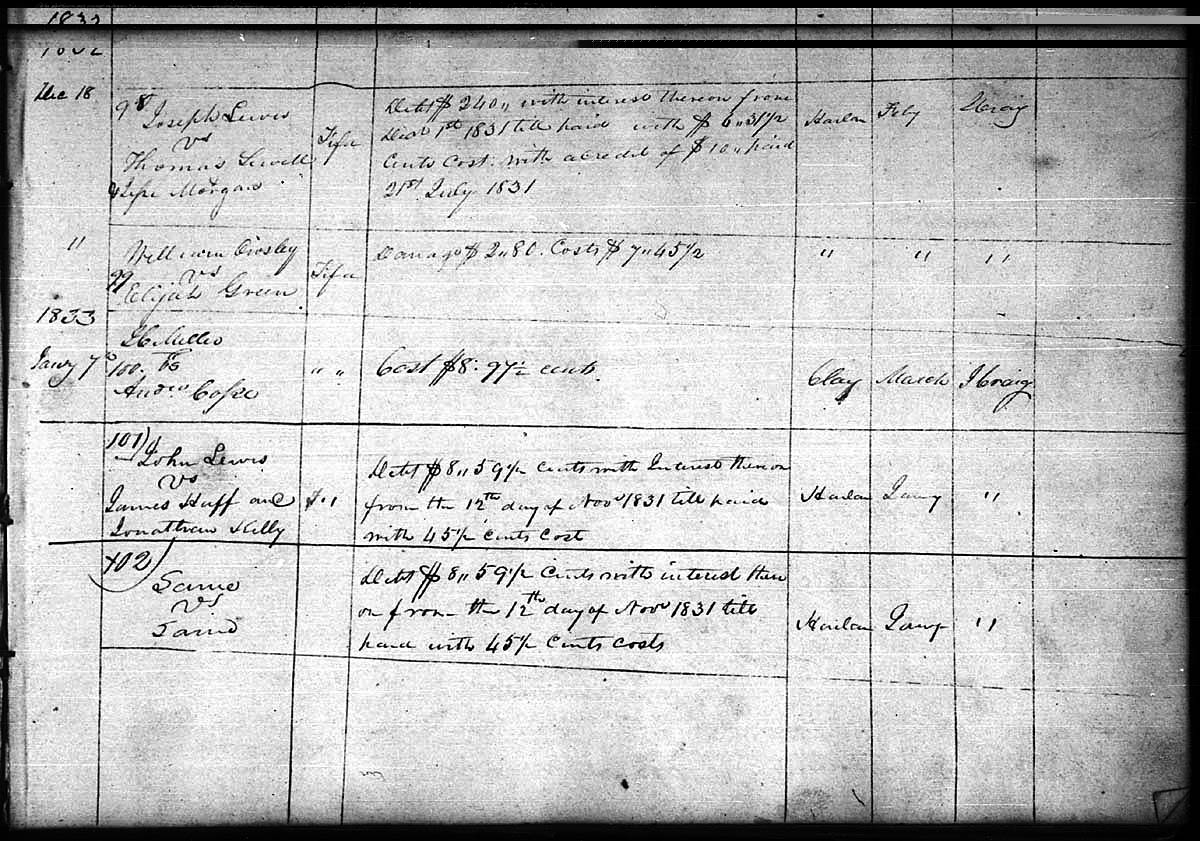 1832
Dec 18
98 Joseph Lewis
vs
Thomas Sewell
& Jesse Morgan
Fifa
Debt $240,, with interest thereon from
1st 1831 till paid with $6,,31 1/2
Cents Cost. with a credit of $10,, paid
21st July 1831
Harlan
Feby
" William Crosby
99 vs
Elijah Green
Fifa
Damage $2,,80. Costs $7,,45 1/2
" " "
1833
Jany 7th
100. vs
Andrw
" "
Cost $8. 97 1/2 cents.
Clay March J Craig
101) John Lewis
vs
James Huff and
Jonathan Kelly
Debt $8,,59 1/2 Cents with Interest thereon
from the 12th day of Novr 1831 till paid
with 45 1/2 cents cost
Harlan Jany "
102) Same
vs
Same
Debt $8,,59 1/2 Cents with interest there
on from the 12th day of Novr 1831 till
paid with 45 1/2 Cents costs
Harlan Jany "